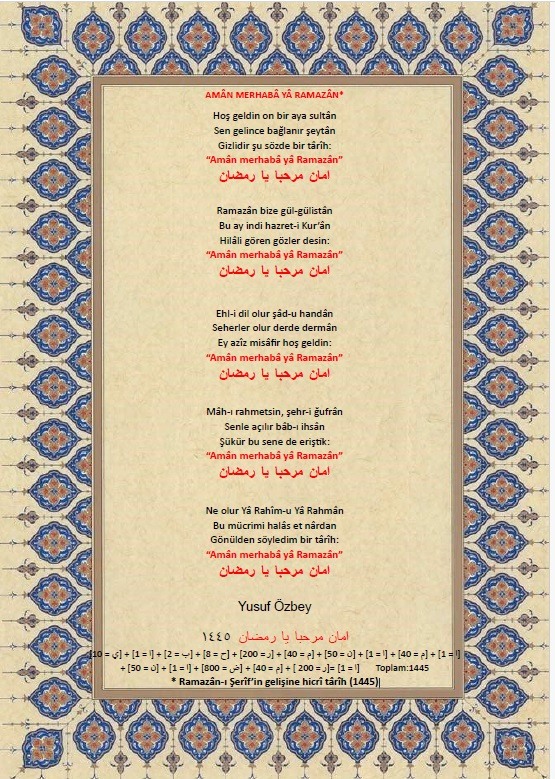 AMÂN MERHABÂ YÂ RAMAZÂN*
Hoş geldin on bir aya sultân
Sen gelince bağlanır şeytân
Gizlidir şu sözde bir târîh:
“Amân merhabâ yâ Ramazân”
امان مرحبا يا رمضان
Ramazân bize gül-gülistân
Bu ay indi hazret-i Kur’ân
Hilâli gören gözler desin:
“Amân merhabâ yâ Ramazân”
امان مرحبا يا رمضان
Ehl-i dil olur şâd-u handân
Seherler olur derde dermân
Ey azîz misâfir hoş geldin:
“Amân merhabâ yâ Ramazân”
امان مرحبا يا رمضان
Mâh-ı rahmetsin, şehr-i ğufrân
Senle açılır bâb-ı ihsân
Şükür bu sene de eriştik:
“Amân merhabâ yâ Ramazân”
امان مرحبا يا رمضان
Ne olur Yâ Rahîm-u Yâ Rahmân
Bu mücrimi halâs et nârdan
Gönülden söyledim bir târîh:
“Amân merhabâ yâ Ramazân”
امان مرحبا يا رمضان
Yusuf Özbey
امان مرحبا يا رمضان ١٤٤٥
[ا = 1] + [م = 40] + [ا = 1] + [ن = 50] + [م = 40] + [ر = 200] + [ح = 8] + [ب = 2] + [ا = 1] + [ي = 10]
+ [ا = 1] [ر = 200] + [م = 40] + [ض = 800] + [ا = 1] + [ن = 50] Toplam:1445
* Ramazân-ı Şerîf’in gelişine hicrî târîh (1445)